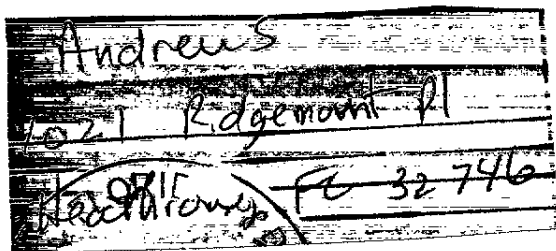 Andrews
1021 Ridgemount Pl
Heathrow, FL 32746